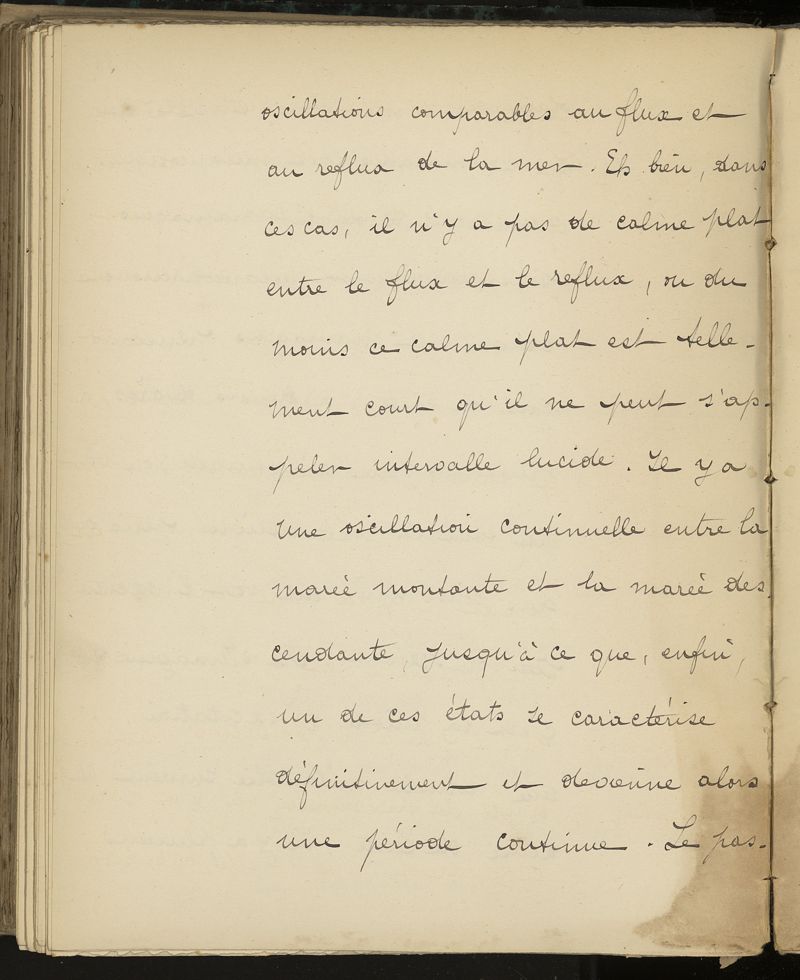 oscillations comparables au flux et
au reflux de la mer. Eh bien, dans
ces cas, il n'y a pas de calme plat
entre le flux et le reflux, ou du
moins ce calme plat est telle-
ment court qu'il ne peut s'ap-
peler intervalle lucide. Il y a
une oscillation continuelle entre la
mareé montante et la mareé des-
cendante, jusqu'à ce que, enfin,
un de ces états se caractérise
définitivement et devienne alors
une période continue. Le pas-